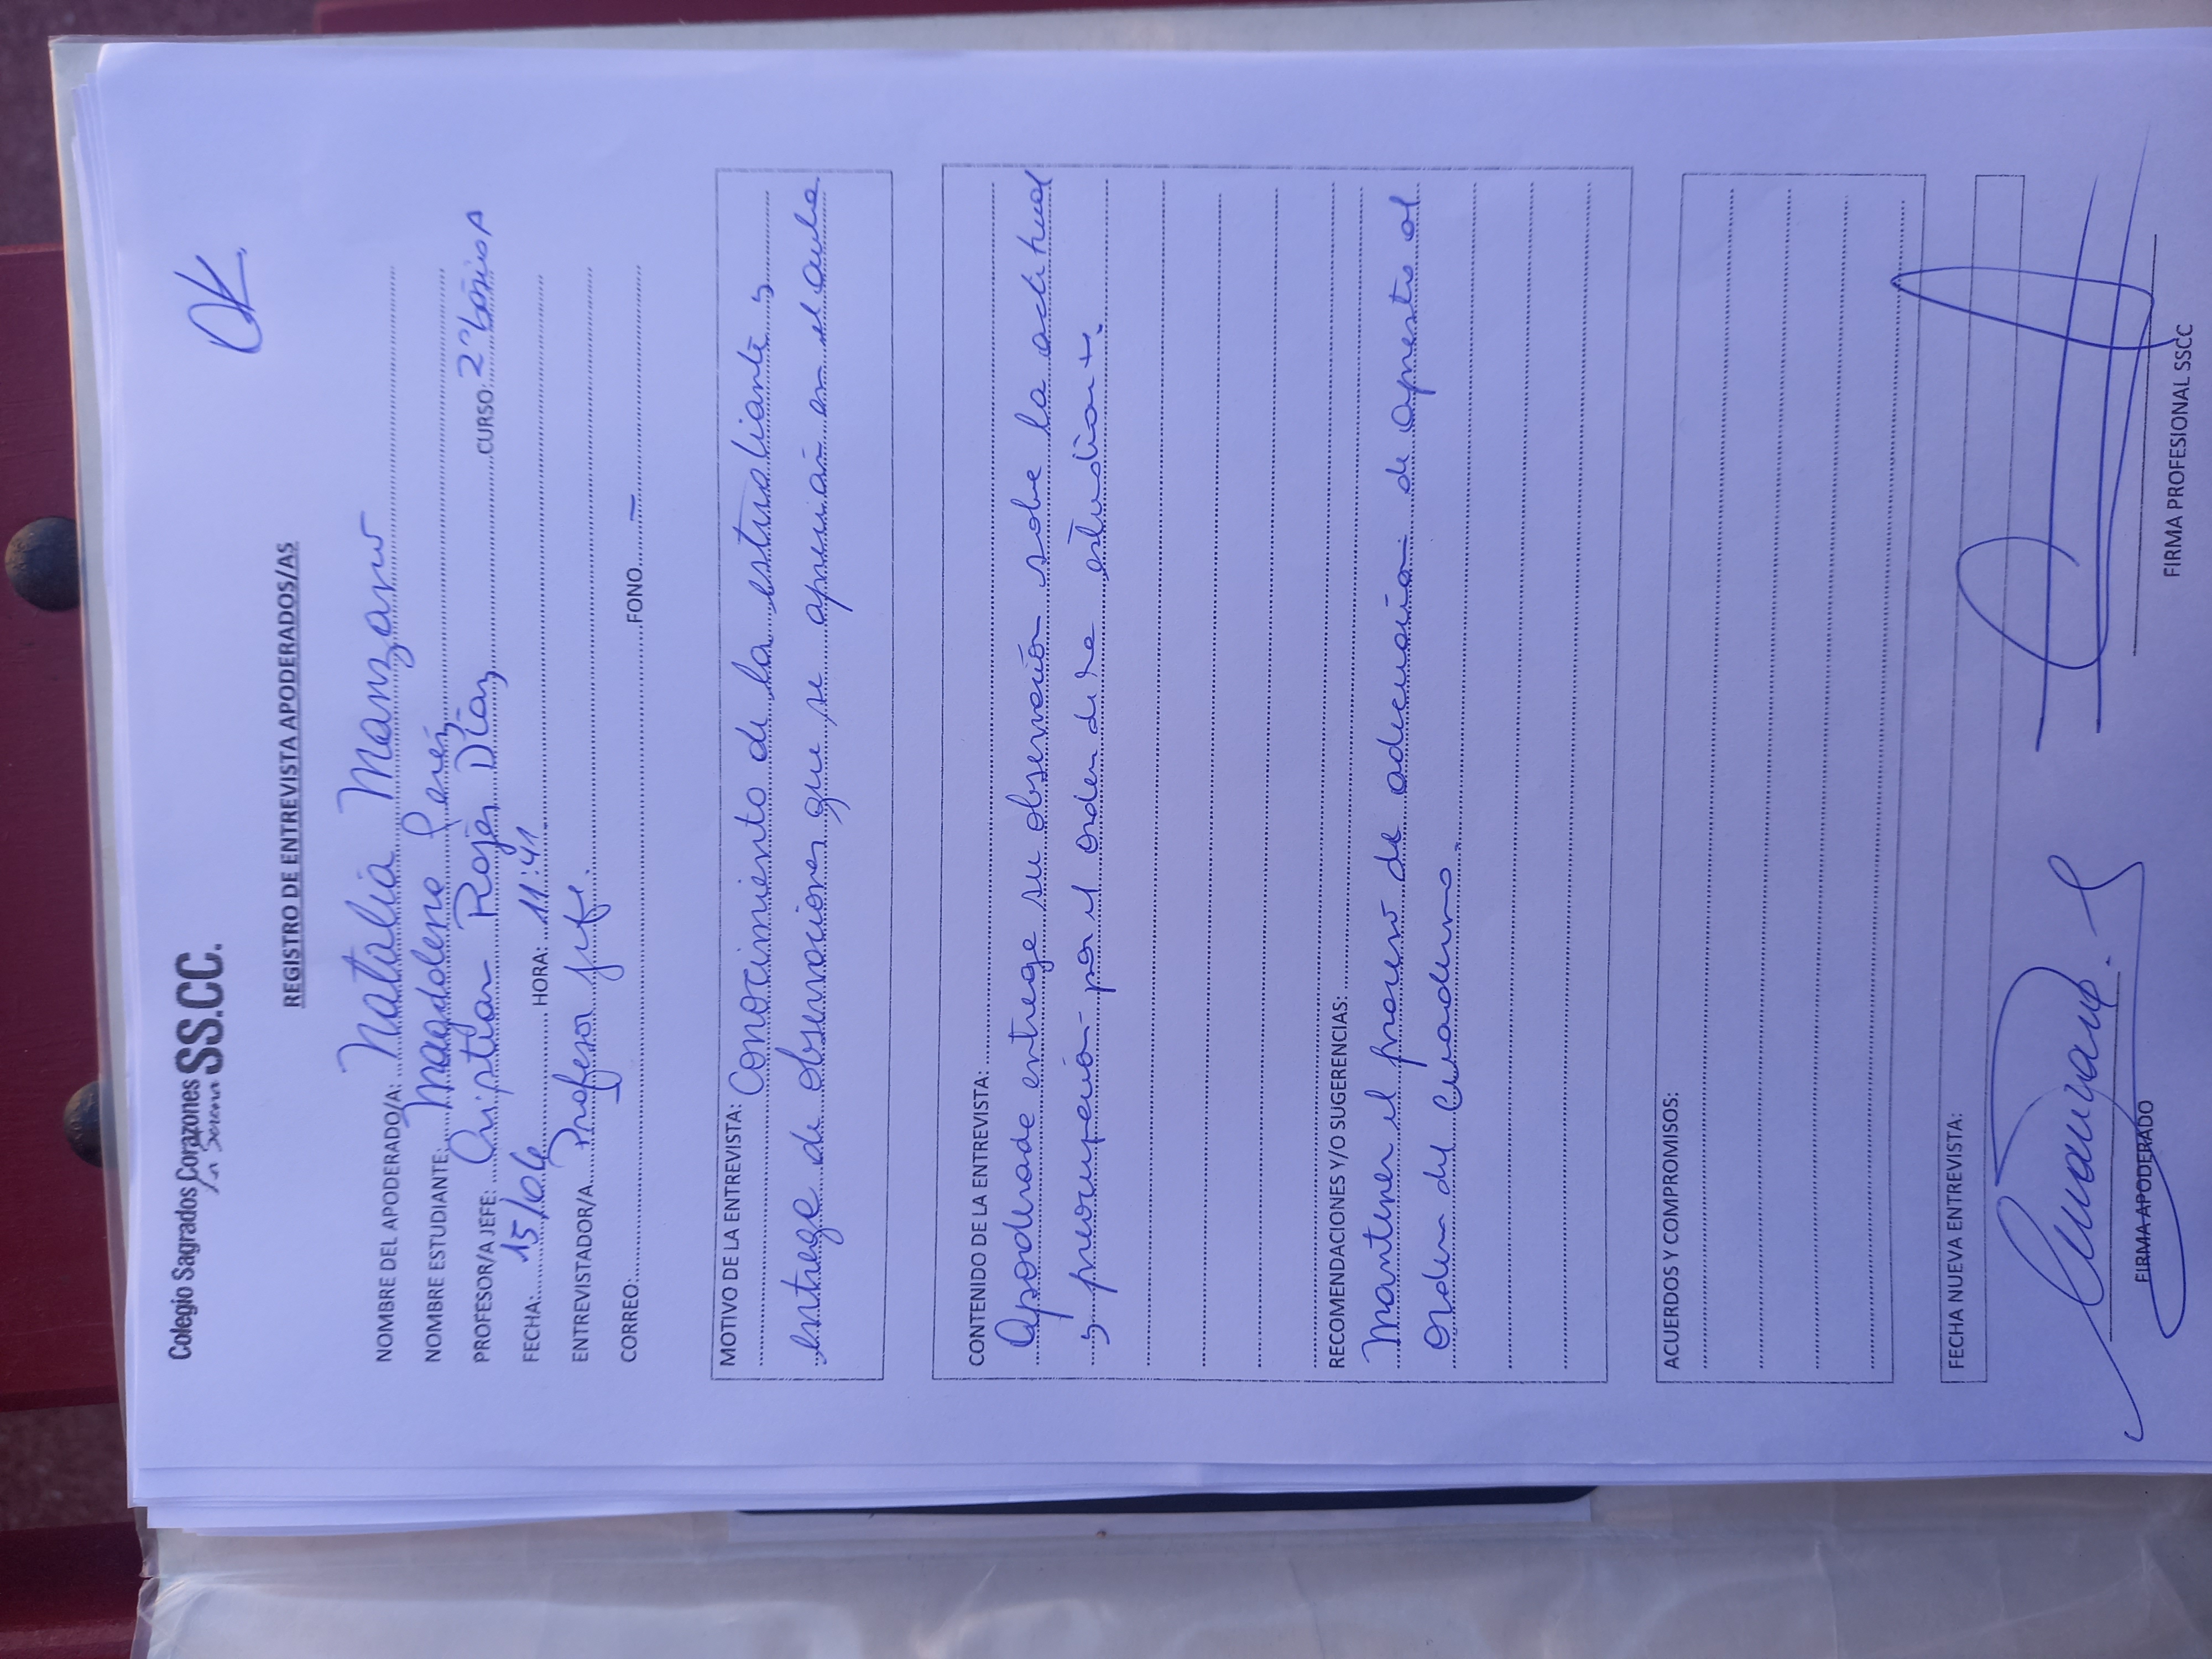 Colegio Sagrados Corazones SS.CC.
La Serena
OK
REGISTRO DE ENTREVISTA APODERADOS/AS
NOMBRE DEL APODERADO/A: Natalia Manzano
NOMBRE ESTUDIANTE: Magdalena Perez
PROFESOR/A JEFE: Cristian Rojas Díaz CURSO: 2° básico A
FECHA: 15/04 HORA: 11:41
ENTREVISTADOR/A Profesor jefe.
CORREO: FONO —
MOTIVO DE LA ENTREVISTA: Conocimiento de la estudiante y
entrega de observaciones que se aprecian en el aula
CONTENIDO DE LA ENTREVISTA:
Apoderada entrega su observación sobre la actitud
y preocupación por el orden de la estudiante.
RECOMENDACIONES Y/O SUGERENCIAS:
Mantener el proceso de adecuación de apresto al
orden del cuaderno.
ACUERDOS Y COMPROMISOS:
FECHA NUEVA ENTREVISTA:
FIRMA APODERADO FIRMA PROFESIONAL SSCC